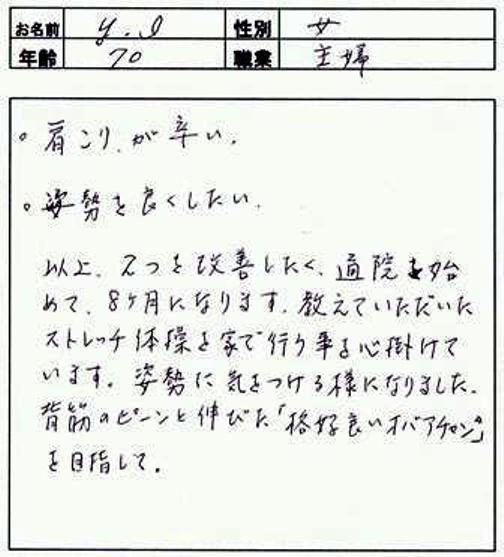 お名前 y.I 性別 女
年齢 70 職業 主婦
。肩こりが辛い。
。姿勢を良くしたい。
以上、2つを改善したく、通院を始
めて、8ヶ月になります。教えていただいた
ストレッチ体操を家で行う事を心掛けて
います。姿勢に気をつける様になりました。
背筋のピーンと伸びた「格好良いオバアチャン」
を目指して。